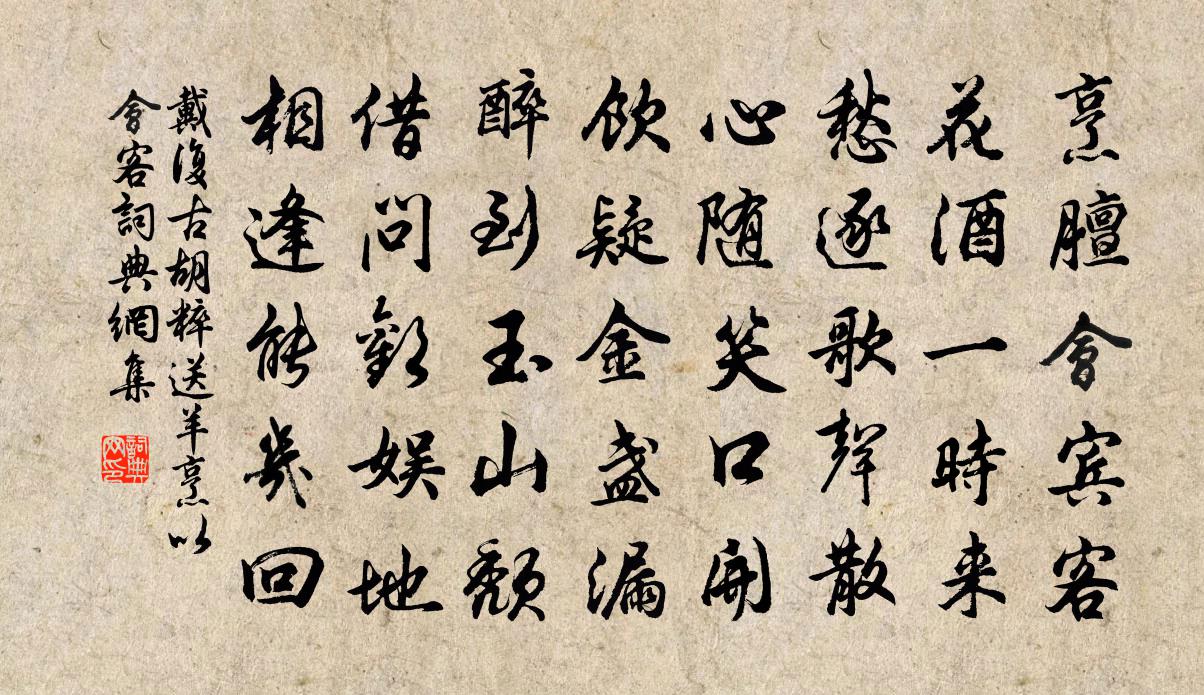 烹膻會賓客
花酒一時来
愁逐歌聲散
心随笑口開
飲疑金盏漏
醉到玉山頹
借問歡娛地
相逢能幾回
戴復古胡粹送羊烹以
會客詞典網集
詞典
网印